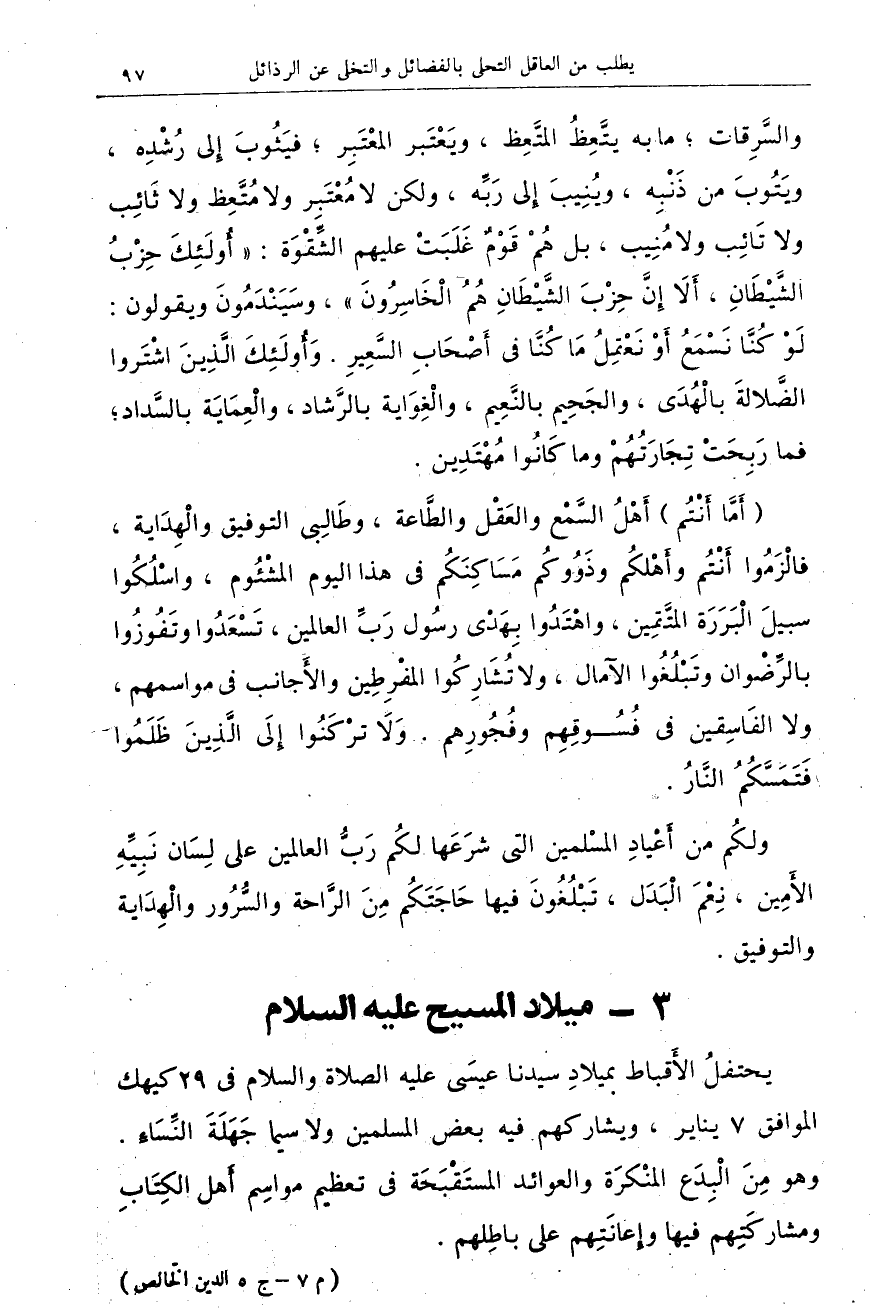 يطلب من العاقل التحلى بالفضائل والتخلى عن الرذائل ٩٧
والسَّرِقات ؛ مابه يتَّعِظُ المتَّعِظ ، ويَعْتَبر المعْتَبِر ؛ فيَثُوبَ إلى رُشْدِه ،
ويَتُوبَ من ذَنْبِه ، ويُنِيبَ إلى رَبِّه ، ولكن لامُعْتَبِر ولامُتَّعِظ ولا ثَائِب
ولا تَائِب ولامُنِيب ، بل هُمْ قَوْمٌ غَلَبَتْ عليهم الشِّقْوَة : « أُولَئِكَ حِزْبُ
الشَّيْطَانِ ، أَلَا إِنَّ حِزْبَ الشَّيْطَانِ هُمُ الْخَاسِرُونَ » ، وسَيَنْدَمُونَ ويقولون :
لَوْ كُنَّا نَسْمَعُ أَوْ نَعْقِلُ مَا كُنَّا فى أَصْحَابِ السَّعِيرِ . وَأُولَئِكَ الَّذِينَ اشْتَروا
الضَّلالةَ بالْهُدَى ، والجَحِيم بالنَّعِيم ، والْغِوَاية بالرَّشاد ، والْعِمَايَة بالسَّداد؛
فما رَبِحَتْ تِجَارَتُهُمْ وما كَانُوا مُهْتَدِين .
( أَمَّا أَنْتُم ) أَهْلُ السَّمْع والعَقْل والطَّاعة ، وطَالِبِى التوفيق والْهِدَاية ،
فالْزَمُوا أَنْتُم وأَهْلكُم وذَوُوكُم مَسَاكِنَكُم فى هذا اليوم المشْئُوم ، واسْلُكُوا
سبيلَ الْبَرَرَة المتَّقِين ، واهْتَدُوا بِهَدْى رسُول رَبِّ العالمين ، تَسْعَدُوا وتَفُوزُوا
بالرِّضْوان وتَبْلُغُوا الآمال ، ولاتُشَارِكُوا المفْرِطِين والأَجانب فى مواسمهم ،
ولا الفَاسِقين فى فُسُـوقِهِم وفُجُورِهم . وَلَا ترْكَنُوا إلَى الَّذِينَ ظَلَمُوا
فَتَمَسَّكُمُ النَّارُ .
ولكُم من أَعْيادِ المسْلمين التى شرَعَها لكُم رَبُّ العالمين على لِسَان نَبِيِّهِ
الأَمِين ، نِعْمَ الْبَدَل ، تَبْلُغُونَ فيها حَاجَتَكُم مِنَ الرَّاحة والسُّرُور والْهِدَاية
والتوفيق .
٣ – ميلاد المسيح عليه السلام
يحتفلُ الأَقباط بميلادِ سيدنا عيسَى عليه الصلاة والسلام فى ٢٩كيهك
الموافق ٧ يناير ، ويشاركهم فيه بعض المسلمين ولاسيما جَهَلَةَ النِّسَاء .
وهو مِنَ الْبِدَع المنْكرَة والعوائد المستَقْبَحَة فى تعظيم مواسِم أهل الكِتَابِ
ومشاركَتِهم فيها وإعانَتِهم على باطِلهم .
(م ٧ – ج ٥ الدين الخالص)